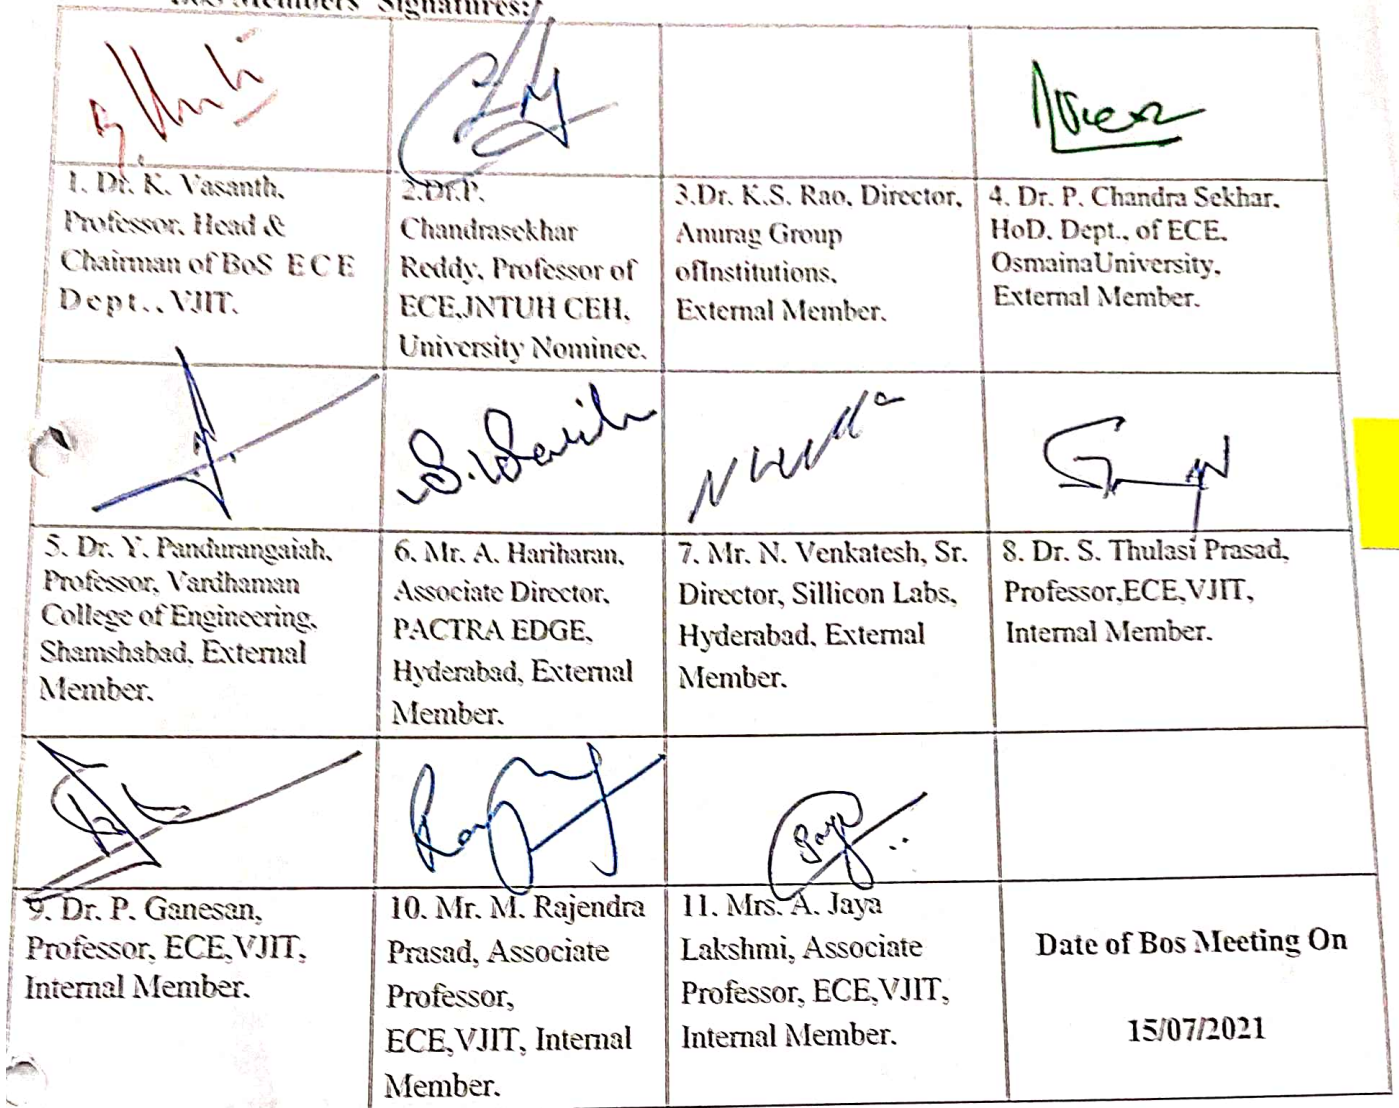 BoS Members' Signatures:
1. Dr. K. Vasanth,
Professor, Head &
Chairman of BoS E C E
Dept., VJIT.
2.Dr.P.
Chandrasekhar
Reddy, Professor of
ECE,JNTUH CEH,
University Nominee.
3.Dr. K.S. Rao, Director,
Anurag Group
ofInstitutions,
External Member.
4. Dr. P. Chandra Sekhar,
HoD, Dept., of ECE,
OsmainaUniversity,
External Member.
5. Dr. Y. Pandurangaiah,
Professor, Vardhaman
College of Engineering,
Shamshabad, External
Member.
6. Mr. A. Hariharan,
Associate Director,
PACTRA EDGE,
Hyderabad, External
Member.
7. Mr. N. Venkatesh, Sr.
Director, Sillicon Labs,
Hyderabad, External
Member.
8. Dr. S. Thulasi Prasad,
Professor,ECE,VJIT,
Internal Member.
9. Dr. P. Ganesan,
Professor, ECE,VJIT,
Internal Member.
10. Mr. M. Rajendra
Prasad, Associate
Professor,
ECE,VJIT, Internal
Member.
11. Mrs. A. Jaya
Lakshmi, Associate
Professor, ECE,VJIT,
Internal Member.
Date of Bos Meeting On
15/07/2021